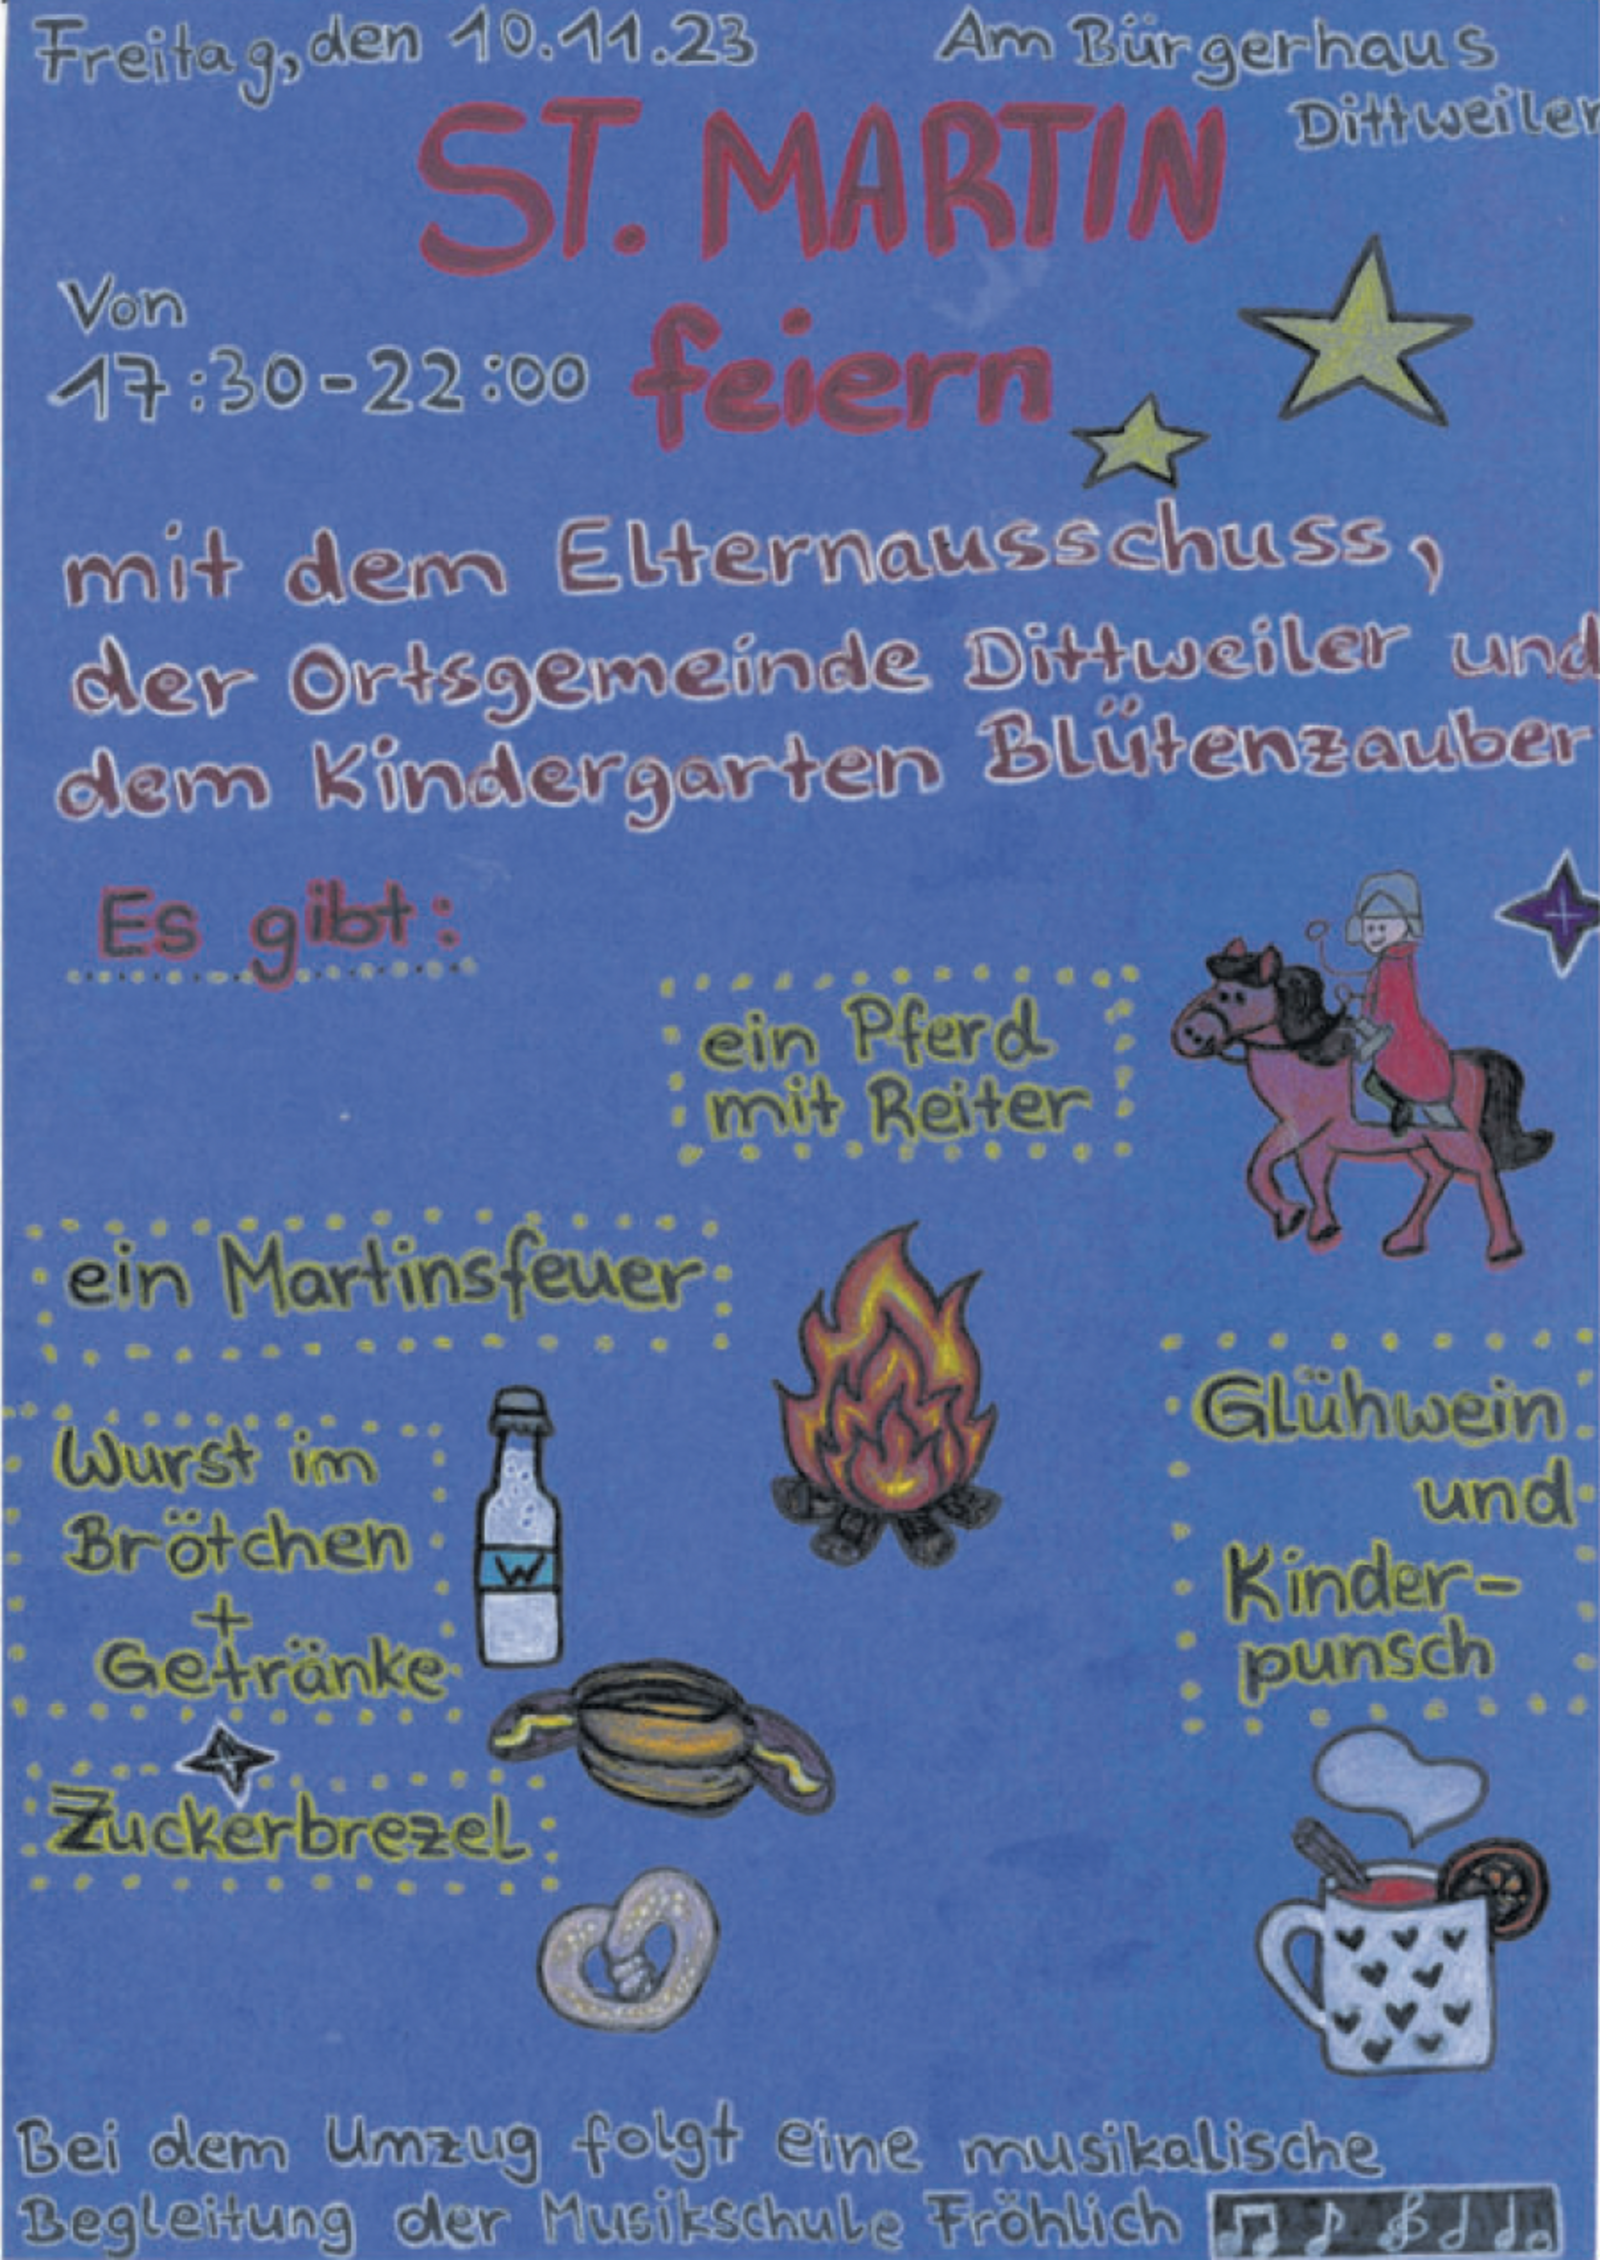 Freitag, den 10.11.23
Am Bürgerhaus
Dittweiler
ST. MARTIN
feiern
Von
17:30-22:00
mit dem Elternausschuss,
der Ortsgemeinde Dittweiler und
dem Kindergarten Blütenzauber
Es gibt:
ein Pferd
mit Reiter
ein Martinsfeuer
Wurst im
Brötchen
+
Getränke
W
Glühwein
und
Kinder-
punsch
Zuckerbrezel
Bei dem Umzug folgt eine musikalische
Begleitung der Musikschule Fröhlich